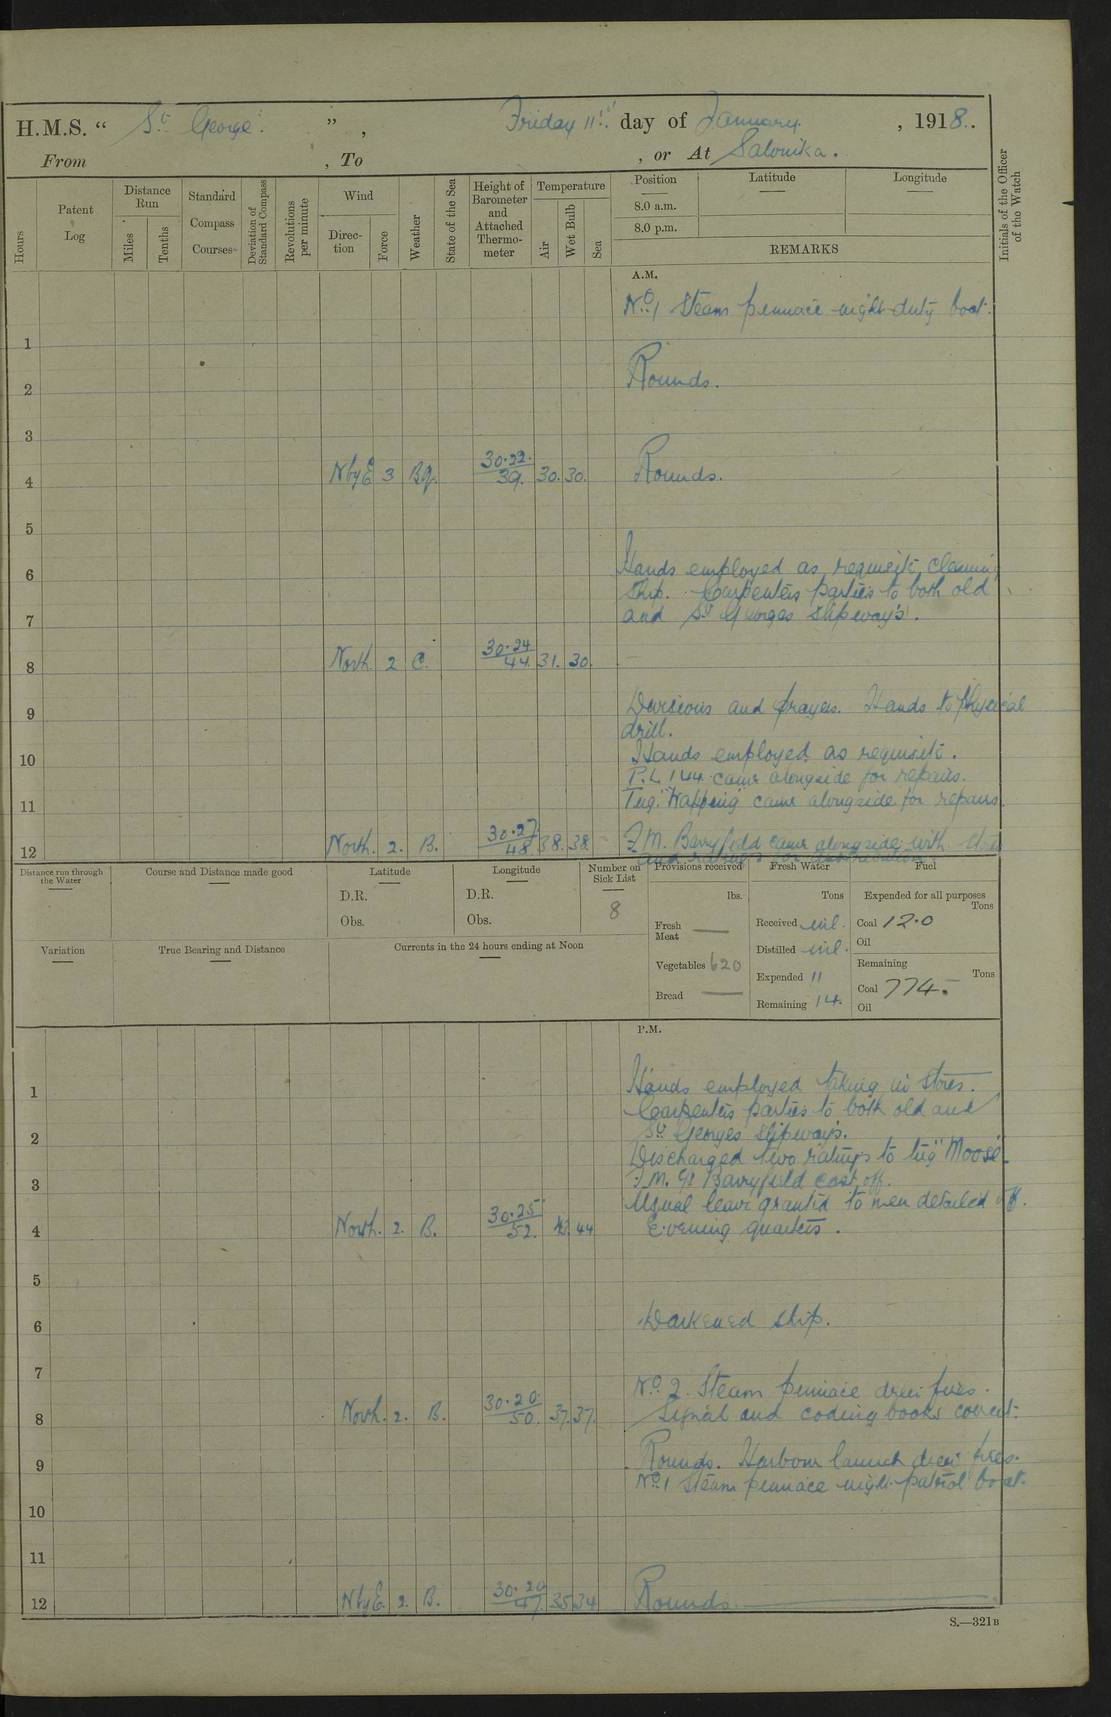 H.M.S. “ St George. ” , Friday 11th day of January , 1918.
From , To , or At Salonika.
Hours
Patent Log
Distance Run
Miles
Tenths
Standard Compass Courses
Deviation of Standard Compass
Revolutions per minute
Wind
Direction
Force
Weather
State of the Sea
Height of Barometer and Attached Thermometer
Temperature
Air
Wet Bulb
Sea
Position
Latitude
Longitude
8.0 a.m.
8.0 p.m.
REMARKS
Initials of the Officer of the Watch
A.M.
No. 1 Steam pinnace night duty boat.
1
Rounds.
2
3
4 NbyE 3 30.22 39. 30. 30. Rounds.
5
Hands employed as requisite, cleaning
6
ship. Carpenters parties to both old
and St Georges slipway's.
7
8 North 2 C. 30.24 44 31. 30.
Divisions and prayers. Hands to physical
9
drill.
Hands employed as requisite.
10
P.L. 144 came alongside for repairs.
Tug "Wapping" came alongside for repairs.
11
12 North. 2. B. 30.27 48 38. 38. came alongside with
Distance run through the Water
Course and Distance made good
Latitude
D.R.
Obs.
Longitude
D.R.
Obs.
Number on Sick List
8
Provisions received
lbs.
Fresh Meat —
Vegetables 620
Bread —
Fresh Water
Tons
Received nil.
Distilled nil.
Expended 11
Remaining 14.
Fuel
Expended for all purposes
Tons
Coal 12.0
Oil
Remaining
Tons
Coal 774.
Oil
Variation
True Bearing and Distance
Currents in the 24 hours ending at Noon
P.M.
Hands employed taking in stores.
1
Carpenters parties to both old and
2
St Georges slipways.
Discharged two ratings to tug "Moose".
3
cast off.
Usual leave granted to men detailed off.
4 North. 2. B. 30.25 52. 44 Evening quarters.
5
6 Darkened ship.
7
No. 2 Steam pinnace drew fires.
8 North. 2. B. 30.20 50. 37. 37. Signal and coding books correct.
Rounds. Harbour launch drew fires.
9
No. 1 Steam pinnace night patrol boat.
10
11
12 NbyE. 2. B. 30.20 47 35 34 Rounds.
S.—321B